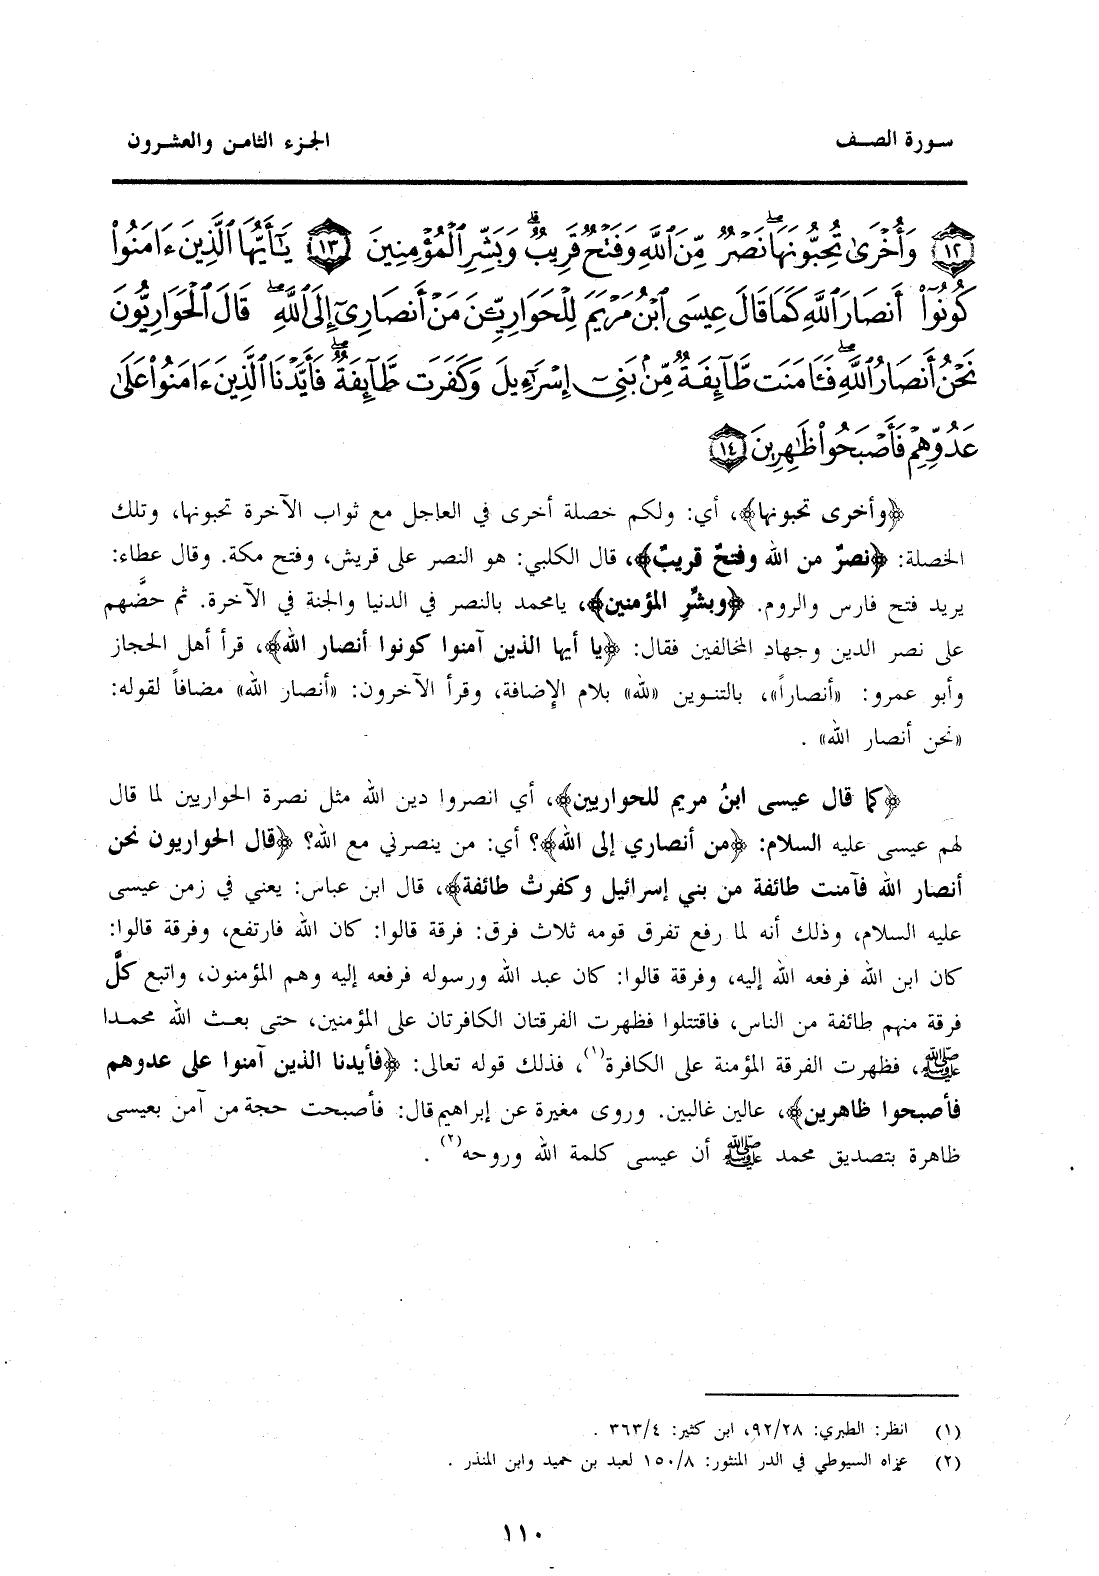 سورة الصف
الجزء الثامن والعشرون
١٢ وَأُخْرَىٰ تُحِبُّونَهَا ۖ نَصْرٌ مِّنَ ٱللَّهِ وَفَتْحٌ قَرِيبٌ ۗ وَبَشِّرِ ٱلْمُؤْمِنِينَ ١٣ يَٰٓأَيُّهَا ٱلَّذِينَ ءَامَنُوا۟
كُونُوٓا۟ أَنصَارَ ٱللَّهِ كَمَا قَالَ عِيسَى ٱبْنُ مَرْيَمَ لِلْحَوَارِيِّـۧنَ مَنْ أَنصَارِىٓ إِلَى ٱللَّهِ ۖ قَالَ ٱلْحَوَارِيُّونَ
نَحْنُ أَنصَارُ ٱللَّهِ ۖ فَـَٔامَنَت طَّآئِفَةٌ مِّنۢ بَنِىٓ إِسْرَٰٓءِيلَ وَكَفَرَت طَّآئِفَةٌ ۖ فَأَيَّدْنَا ٱلَّذِينَ ءَامَنُوا۟ عَلَىٰ
عَدُوِّهِمْ فَأَصْبَحُوا۟ ظَٰهِرِينَ ١٤
﴿وأخرى تحبونها﴾، أي: ولكم خصلة أخرى في العاجل مع ثواب الآخرة تحبونها، وتلك
الخصلة: ﴿نصرٌ من الله وفتحٌ قريبٌ﴾، قال الكلبي: هو النصر على قريش، وفتح مكة. وقال عطاء:
يريد فتح فارس والروم. ﴿وبشِّرِ المؤمنين﴾، يامحمد بالنصر في الدنيا والجنة في الآخرة. ثم حضَّهم
على نصر الدين وجهاد المخالفين فقال: ﴿يا أيها الذين آمنوا كونوا أنصار الله﴾، قرأ أهل الحجاز
وأبو عمرو: «أنصاراً»، بالتنوين «لله» بلام الإضافة، وقرأ الآخرون: «أنصار الله» مضافاً لقوله:
«نحن أنصار الله» .
﴿كما قال عيسى ابنُ مريم للحواريين﴾، أي انصروا دين الله مثل نصرة الحواريين لما قال
لهم عيسى عليه السلام: ﴿من أنصاري إلى الله﴾؟ أي: من ينصرني مع الله؟ ﴿قال الحواريون نحن
أنصار الله فآمنت طائفة من بني إسرائيل وكفرتْ طائفة﴾، قال ابن عباس: يعني في زمن عيسى
عليه السلام، وذلك أنه لما رفع تفرق قومه ثلاث فرق: فرقة قالوا: كان الله فارتفع، وفرقة قالوا:
كان ابن الله فرفعه الله إليه، وفرقة قالوا: كان عبد الله ورسوله فرفعه إليه وهم المؤمنون، واتبع كلَّ
فرقة منهم طائفة من الناس، فاقتتلوا فظهرت الفرقتان الكافرتان على المؤمنين، حتى بعث الله محمدا
ﷺ، فظهرت الفرقة المؤمنة على الكافرة(١)، فذلك قوله تعالى: ﴿فأيدنا الذين آمنوا على عدوهم
فأصبحوا ظاهرين﴾، عالين غالبين. وروى مغيرة عن إبراهيم قال: فأصبحت حجة من آمن بعيسى
ظاهرة بتصديق محمد ﷺ أن عيسى كلمة الله وروحه(٢) .
(١) انظر: الطبري: ٩٢/٢٨، ابن كثير: ٣٦٣/٤ .
(٢) عزاه السيوطي في الدر المنثور: ١٥٠/٨ لعبد بن حميد وابن المنذر .
١١٠